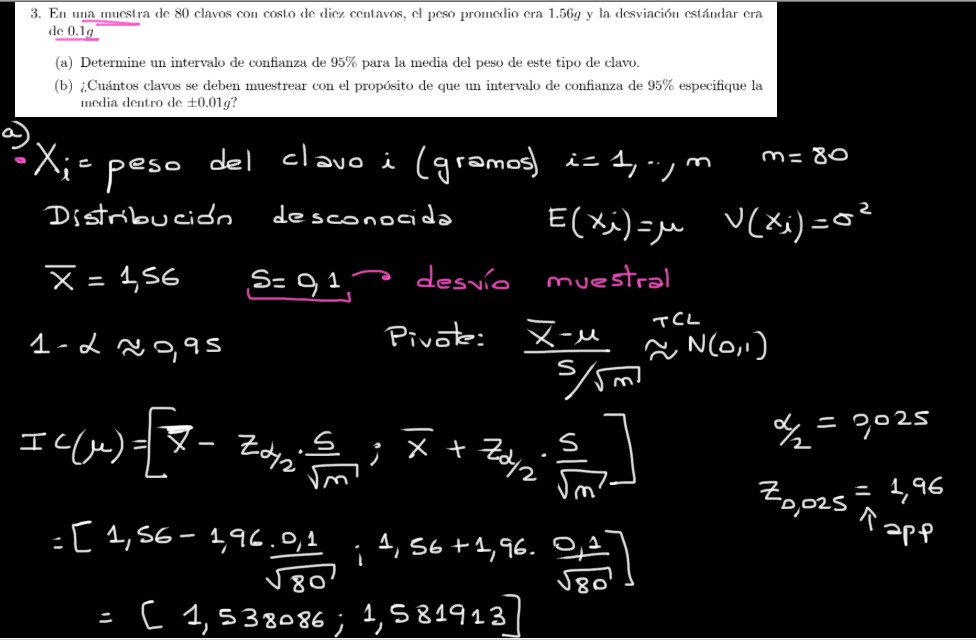 3. En una muestra de 80 clavos con costo de diez centavos, el peso promedio era 1.56g y la desviación estándar era
de 0.1g
(a) Determine un intervalo de confianza de 95% para la media del peso de este tipo de clavo.
(b) ¿Cuántos clavos se deben muestrear con el propósito de que un intervalo de confianza de 95% especifique la
media dentro de ±0.01g?
a)
Xi = peso del clavo i (gramos) i = 1, .., n n = 80
Distribución desconocida E(Xi) = μ V(Xi) = σ²
X̅ = 1,56 S = 0,1 → desvío muestral
1 - α ≈ 0,95 Pivote: (X̅ - μ)/(S/√n) ≈ N(0,1) TCL
IC(μ) = [X̅ - Zα/2 · S/√n ; X̅ + Zα/2 · S/√n]
α/2 = 0,025
Z0,025 = 1,96
↑ app
= [1,56 - 1,96 . 0,1/√80 ; 1,56 + 1,96 . 0,1/√80]
= [1,538086 ; 1,581913]